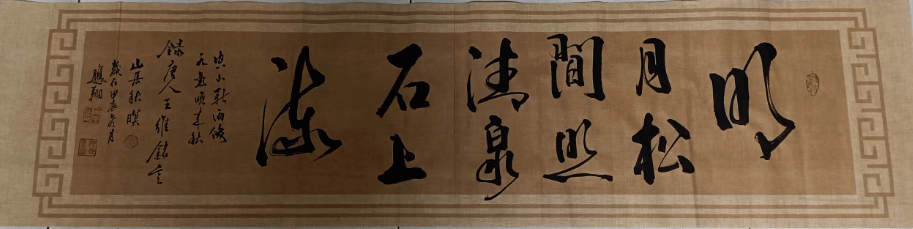 明
月松
間照
清泉
石上
流
空山新雨後
天氣晚來秋
錄唐人王維
山居秋暝
歲在甲辰冬月